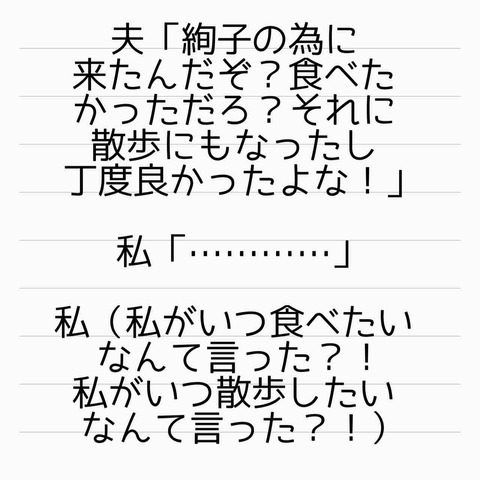 夫「絢子の為に
来たんだぞ？食べた
かっただろ？それに
散歩にもなったし
丁度良かったよな！」
私「…………」
私（私がいつ食べたい
なんて言った？！
私がいつ散歩したい
なんて言った？！）